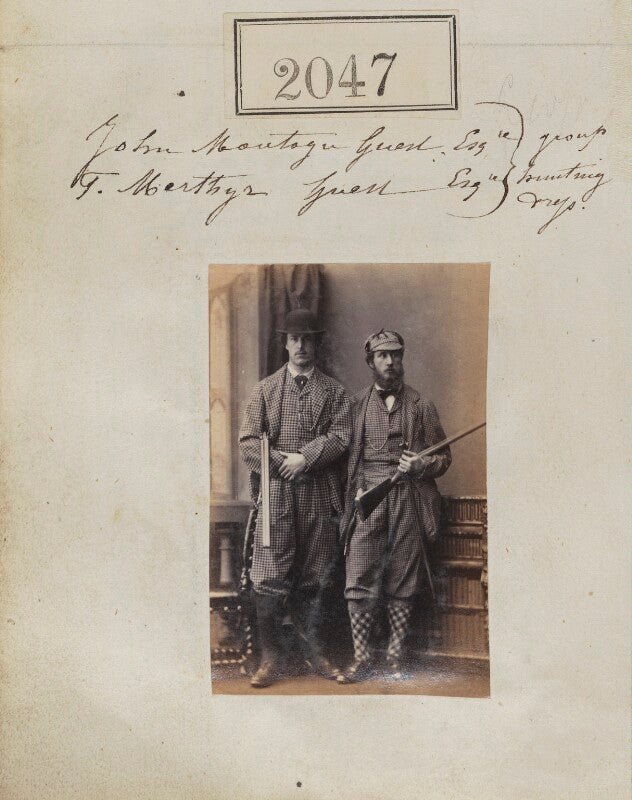 2047
John Montagu Guest Esqre } group
T. Merthyr Guest Esqre } hunting
dress.